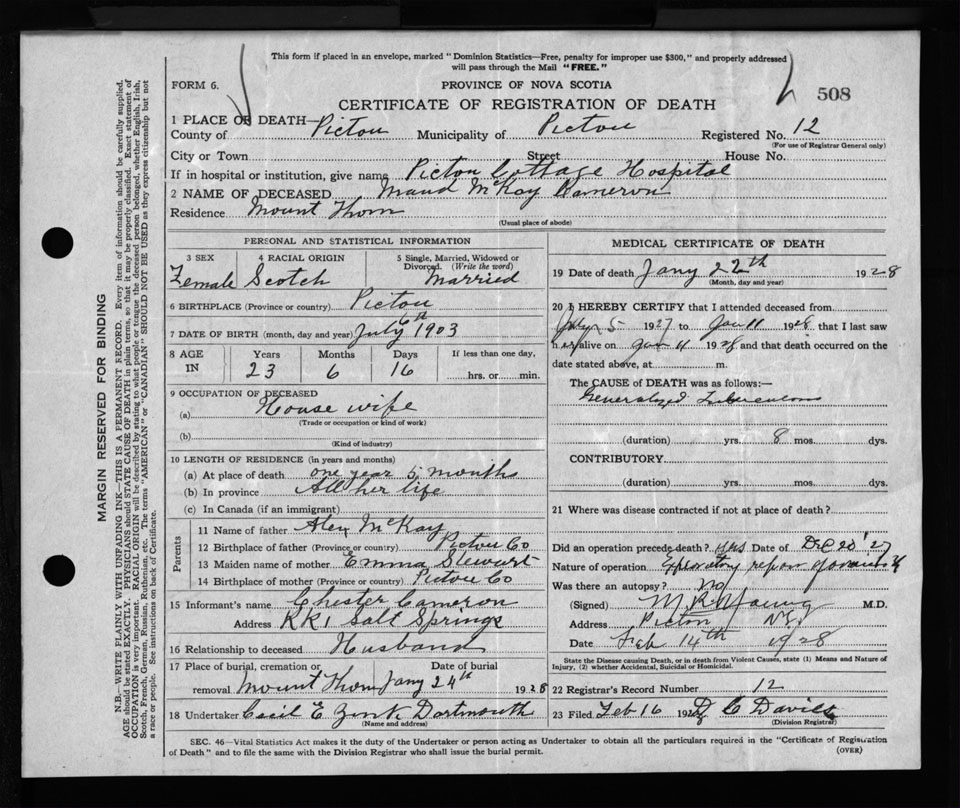 This form if placed in an envelope, marked "Dominion Statistics—Free, penalty for improper use $300," and properly addressed
will pass through the Mail "FREE."
FORM 6.
PROVINCE OF NOVA SCOTIA
508
CERTIFICATE OF REGISTRATION OF DEATH
1 PLACE OF DEATH—
County of Pictou Municipality of Pictou Registered No. 12
(For use of Registrar General only)
City or Town Street House No.
If in hospital or institution, give name Pictou Cottage Hospital
2 NAME OF DECEASED Maud McKay Cameron
Residence Mount Thom
(Usual place of abode)
PERSONAL AND STATISTICAL INFORMATION
3 SEX 4 RACIAL ORIGIN 5 Single, Married, Widowed or
Divorced. (Write the word)
Female Scotch Married
6 BIRTHPLACE (Province or country) Pictou
7 DATE OF BIRTH (month, day and year) July 6th 1903
8 AGE Years Months Days If less than one day,
IN 23 6 16 hrs. or min.
9 OCCUPATION OF DECEASED
(a) House wife
(Trade or occupation or kind of work)
(b)
(Kind of industry)
10 LENGTH OF RESIDENCE (in years and months)
(a) At place of death one year 5 months
(b) In province All her life
(c) In Canada (if an immigrant)
Parents
11 Name of father Alex McKay
12 Birthplace of father (Province or country) Pictou Co
13 Maiden name of mother Emma Stewart
14 Birthplace of mother (Province or country) Pictou Co
15 Informant's name Chester Cameron
Address RR1 Salt Springs
16 Relationship to deceased Husband
17 Place of burial, cremation or Date of burial
removal Mount Thom Jany 24th 1928
18 Undertaker Cecil E Zink Dartmouth
(Name and address)
MEDICAL CERTIFICATE OF DEATH
19 Date of death Jany 22th 1928
(Month, day and year)
20 I HEREBY CERTIFY that I attended deceased from
July 5 1927 to Jan 11 1928 that I last saw
her alive on Jan 11 1928 and that death occurred on the
date stated above, at m.
The CAUSE OF DEATH was as follows:—
Generalized Tuberculosis
(duration) yrs. 8 mos. dys.
CONTRIBUTORY
(duration) yrs. mos. dys.
21 Where was disease contracted if not at place of death?
Did an operation precede death? yes Date of Dec 20 '27
Nature of operation Exploratory
Was there an autopsy? No
(Signed) M R Young M.D.
Address Pictou N.S.
Date Feb 14th 1928
State the Disease causing Death, or in death from Violent Causes, state (1) Means and Nature of
Injury, (2) whether Accidental, Suicidal or Homicidal.
22 Registrar's Record Number 12
23 Filed Feb 16 1928 D C Davies
(Division Registrar)
SEC. 46—Vital Statistics Act makes it the duty of the Undertaker or person acting as Undertaker to obtain all the particulars required in the "Certificate of Registration
of Death" and to file the same with the Division Registrar who shall issue the burial permit.
(OVER)
MARGIN RESERVED FOR BINDING
N.B. WRITE PLAINLY WITH UNFADING INK—THIS IS A PERMANENT RECORD. Every item of information should be carefully supplied.
AGE should be stated EXACTLY. PHYSICIANS should STATE CAUSE OF DEATH in plain terms, so that it may be properly classified. Exact statement of
OCCUPATION is very important. RACIAL ORIGIN will be described by stating to what people or tongue the deceased person belonged, whether English, Irish,
Scotch, French, German, Russian, Ruthenian, etc. The terms "AMERICAN" or "CANADIAN" SHOULD NOT BE USED as they express citizenship but not
a race or people. See instructions on back of Certificate.